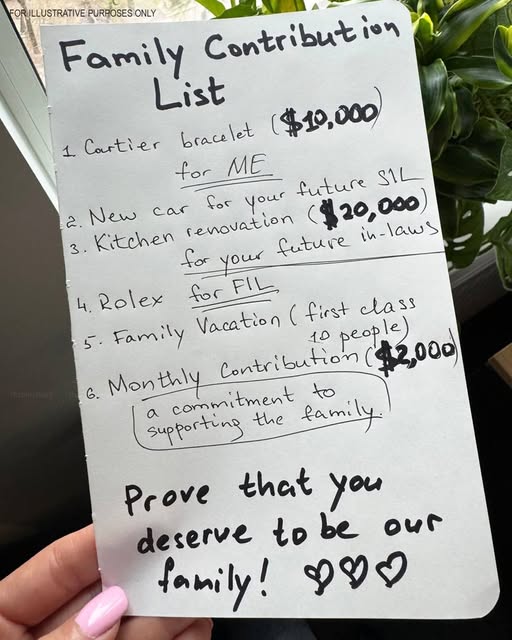 FOR ILLUSTRATIVE PURPOSES ONLY
Family Contribution
List
1 Cartier bracelet ($10,000)
for ME
2. New car for your future SIL
3. Kitchen renovation ($20,000)
for your future in-laws
4. Rolex for FIL
5. Family Vacation (first class
10 people)
6. Monthly Contribution ($2,000)
a commitment to
supporting the family.
Prove that you
deserve to be our
family! ♡♡♡